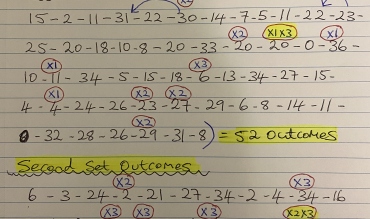 15 - 2 - 11 - 31 - 22 - 30 - 14 - 7 - 5 - 11 - 22 - 23 -
x2 x1x3
25 - 20 - 18 - 10 - 8 - 20 - 33 - 20 - 20 - 0 - 36 -
x1 x3
10 - 11 - 34 - 5 - 15 - 18 - 6 - 13 - 34 - 27 - 15 -
x1 x2 x2
4 - 4 - 24 - 26 - 23 - 27 - 29 - 6 - 8 - 14 - 11 -
x2
0 - 32 - 28 - 26 - 29 - 31 - 8) = 52 Outcomes
Second Set Outcomes
x2 x3
6 - 3 - 24 - 2 - 21 - 27 - 34 - 2 - 4 - 34 - 16
x3 x3 x3 x2x3